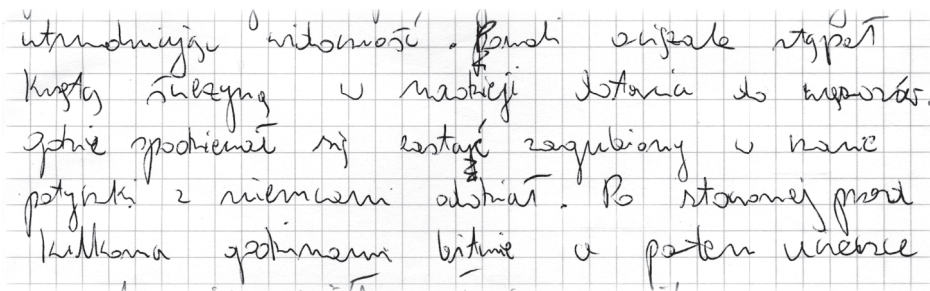 utrudniając widoczność. Powoli ociężale stąpał
krętą ścieżyną w nadziei dotarcia do wąwozów.
gdzie spodziewał się zastać zagubiony w czasie
potyczki z niemcami oddział. Po stoczonej przed
kilkoma godzinami bitwie a potem ucieczce